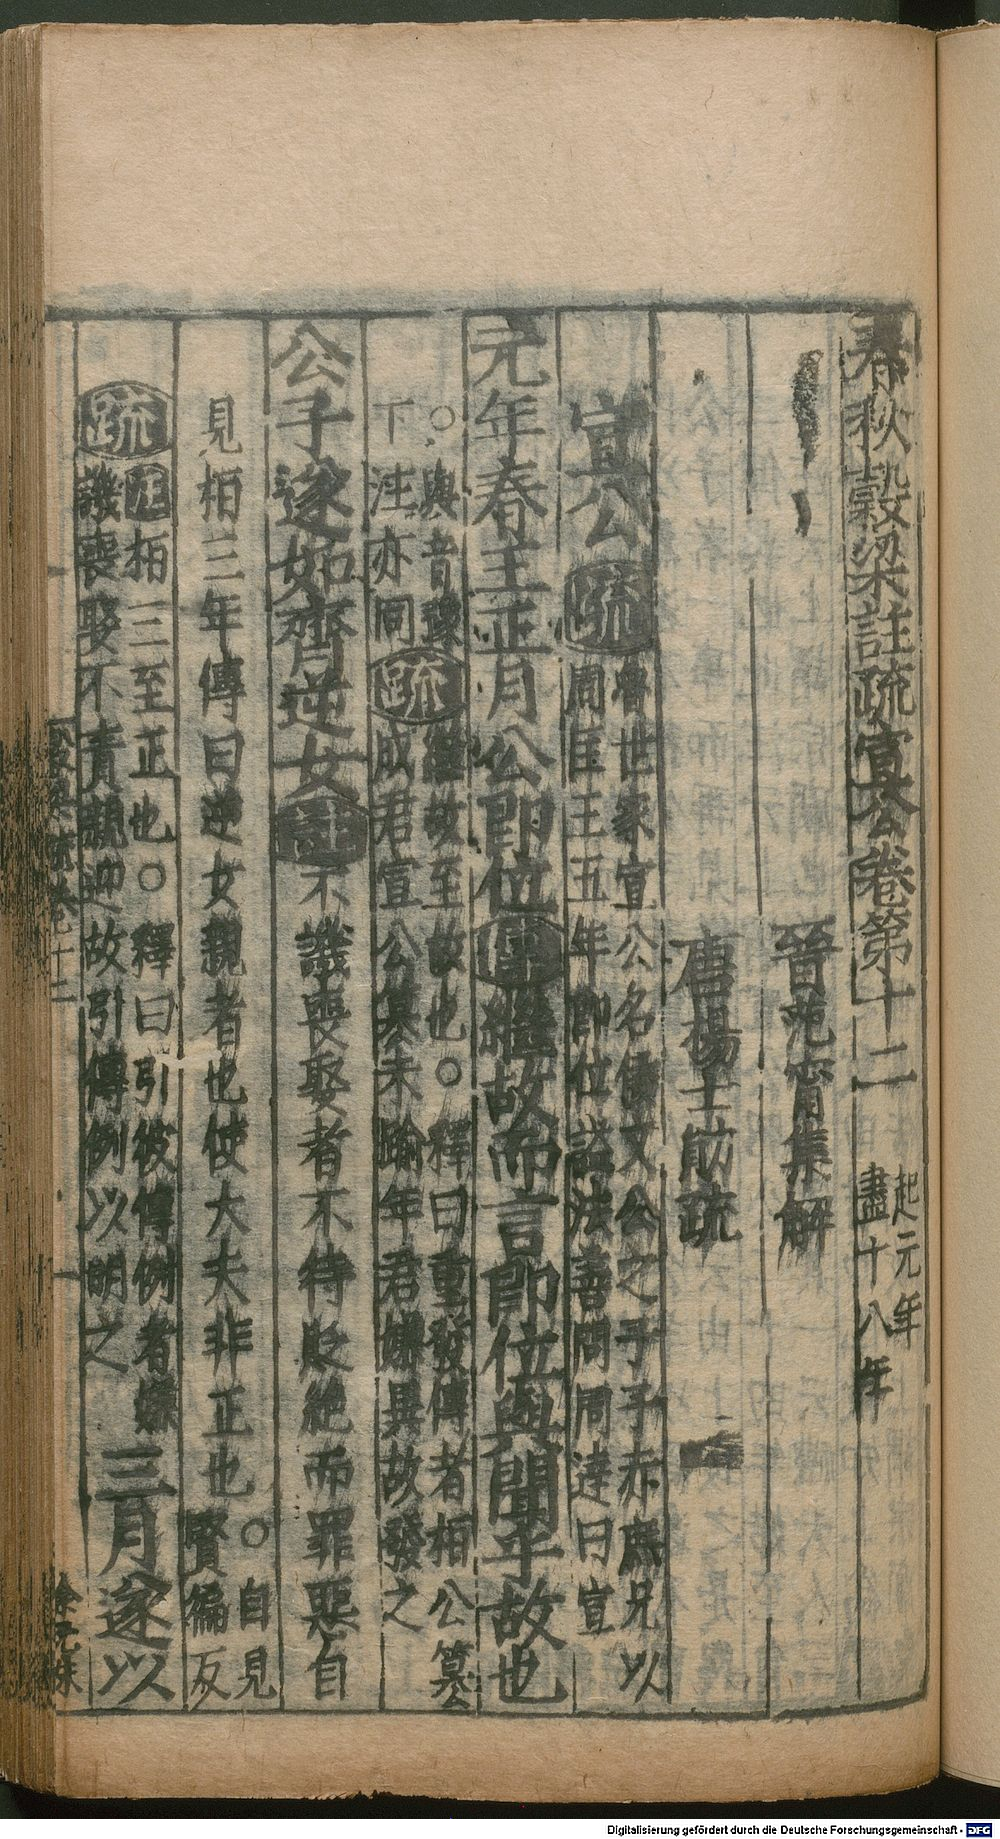 春秋穀梁註疏宣公卷第十二
起元年
盡十八年
晉范甯集解
唐楊士勛疏
宣公疏
魯世家宣公名倭文公之子子赤庶兄以
周匡王五年即位諡法善問周達曰宣
元年春王正月公即位傳繼故而言即位與聞乎故也
○與音豫
下注亦同
疏
繼故至故也○釋曰重發傳者桓公篡
成君宣公篡未踰年君嫌異故發之
公子遂如齊逆女註不譏喪娶者不待貶絕而罪惡自
見桓三年傳曰逆女親者也使大夫非正也
○自見
賢徧反
疏
註桓三至正也○釋曰引彼傳例者嫌
譏喪娶不責親迎故引傳例以明之
三月遂以
Digitalisierung gefördert durch die Deutsche Forschungsgemeinschaft - DFG